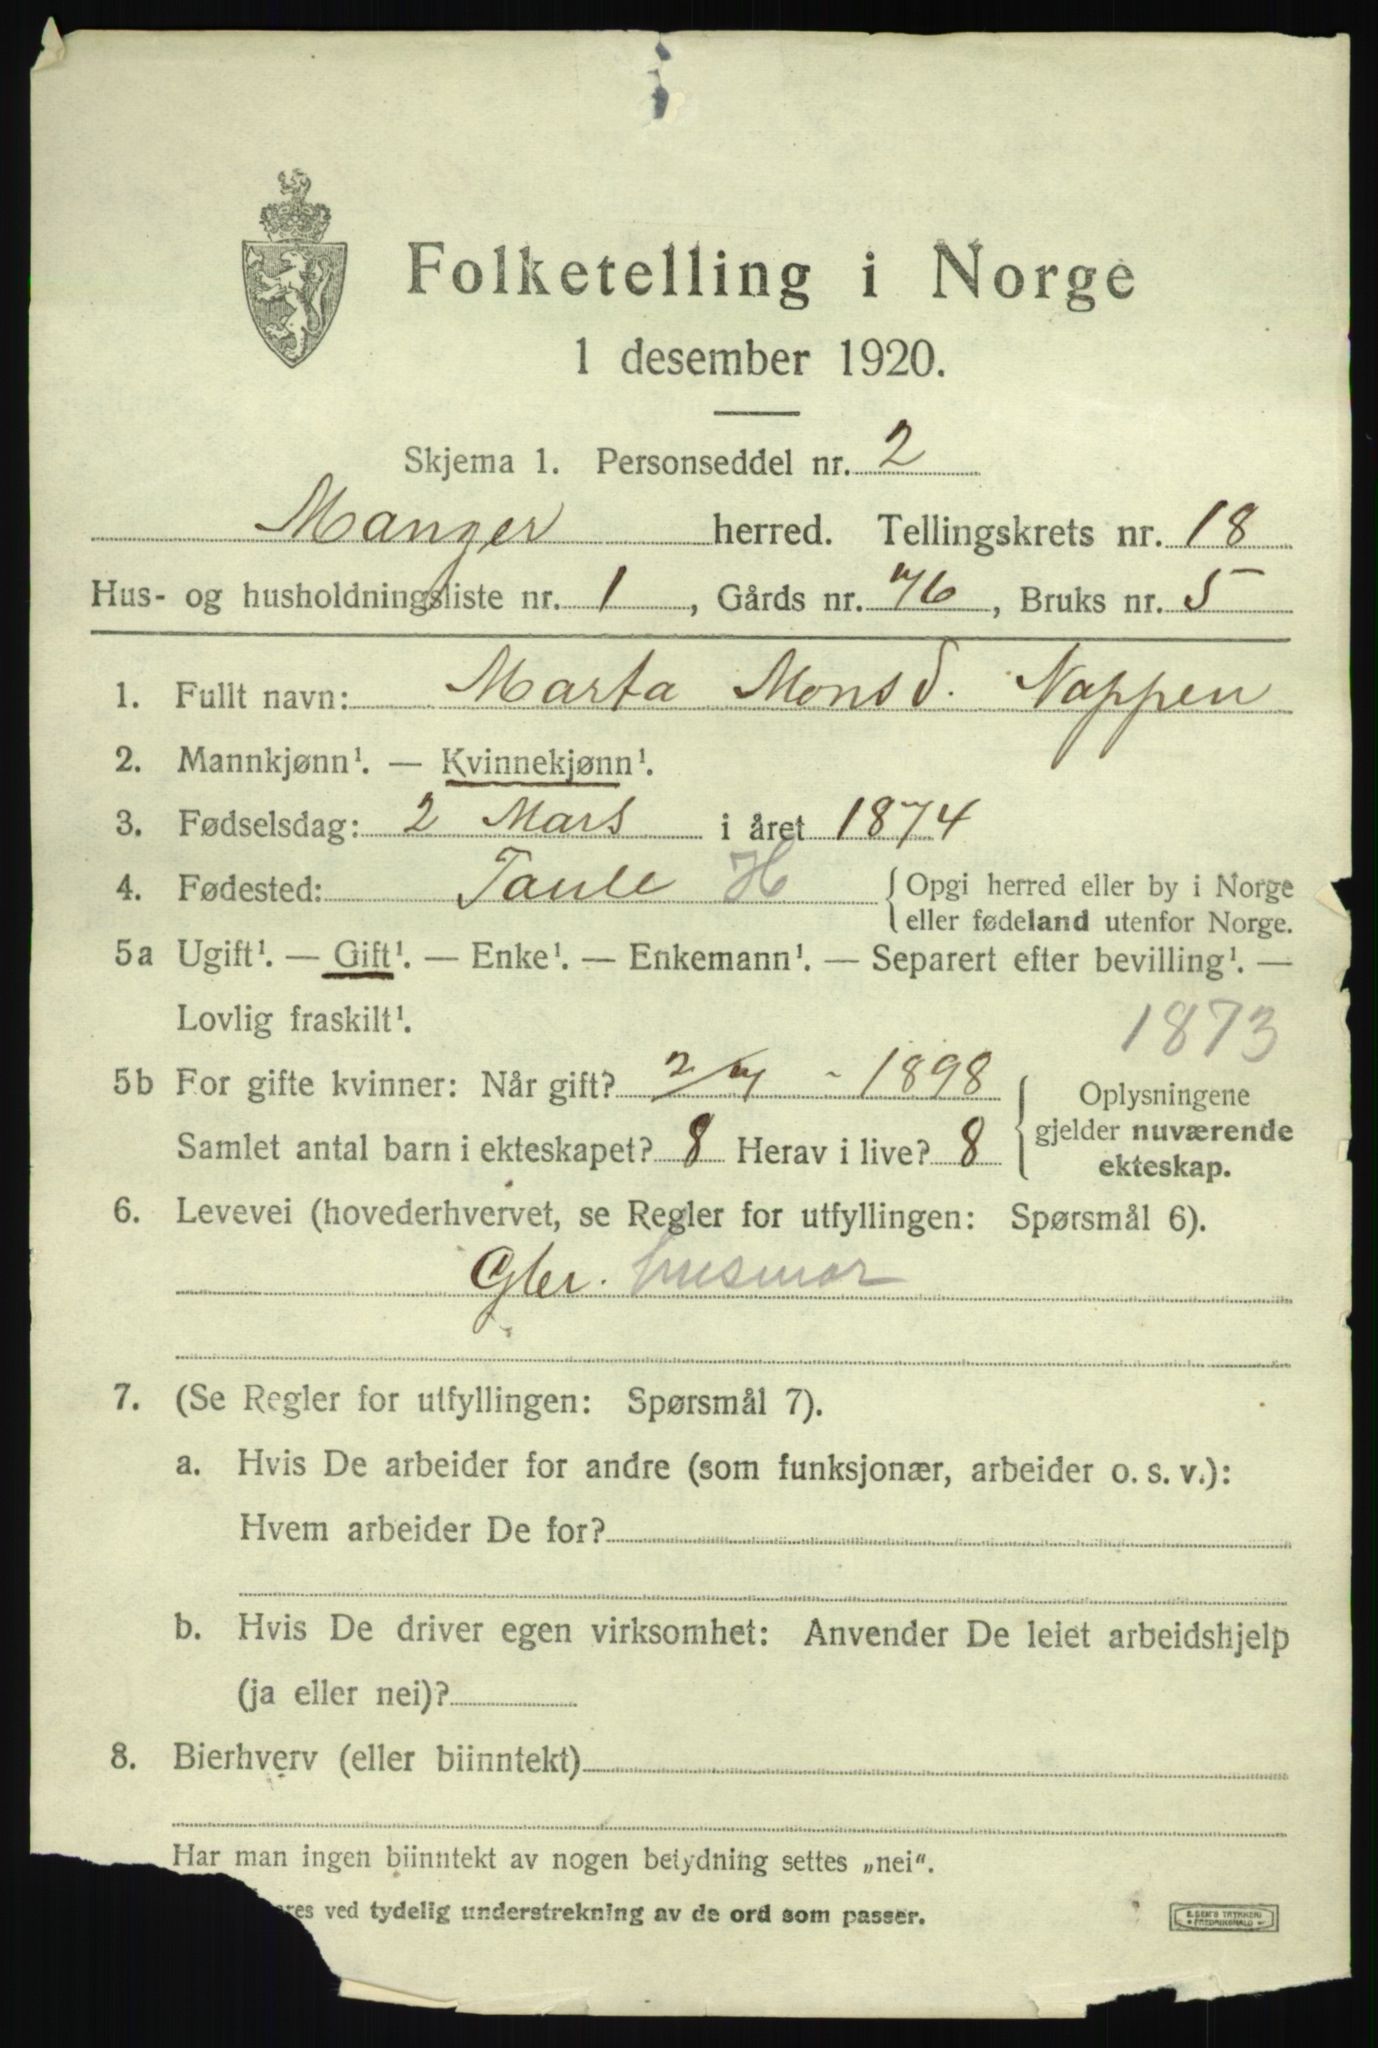 Folketelling i Norge
1 desember 1920.
Skjema 1. Personseddel nr. 2
Manger herred. Tellingskrets nr. 18
Hus- og husholdningsliste nr. 1, Gårds nr. 76, Bruks nr. 5
1. Fullt navn: Marta Monsd. Nappen
2. Mannkjønn¹. — Kvinnekjønn¹.
3. Fødselsdag: 2 Mars i året 1874
4. Fødested: Taule H
{ Opgi herred eller by i Norge
eller fødeland utenfor Norge.
5a Ugift¹. — Gift¹. — Enke¹. — Enkemann¹. — Separert efter bevilling¹. —
Lovlig fraskilt¹.
1873
5b For gifte kvinner: Når gift? 2/7 - 1898
Samlet antal barn i ekteskapet? 8 Herav i live? 8
{ Oplysningene
gjelder nuværende
ekteskap.
6. Levevei (hovederhvervet, se Regler for utfyllingen: Spørsmål 6).
husmor
7. (Se Regler for utfyllingen: Spørsmål 7).
a. Hvis De arbeider for andre (som funksjonær, arbeider o. s. v.):
Hvem arbeider De for?
b. Hvis De driver egen virksomhet: Anvender De leiet arbeidshjelp
(ja eller nei)?
8. Bierhverv (eller biinntekt)
Har man ingen biinntekt av nogen betydning settes „nei“.
ved tydelig understrekning av de ord som passer.